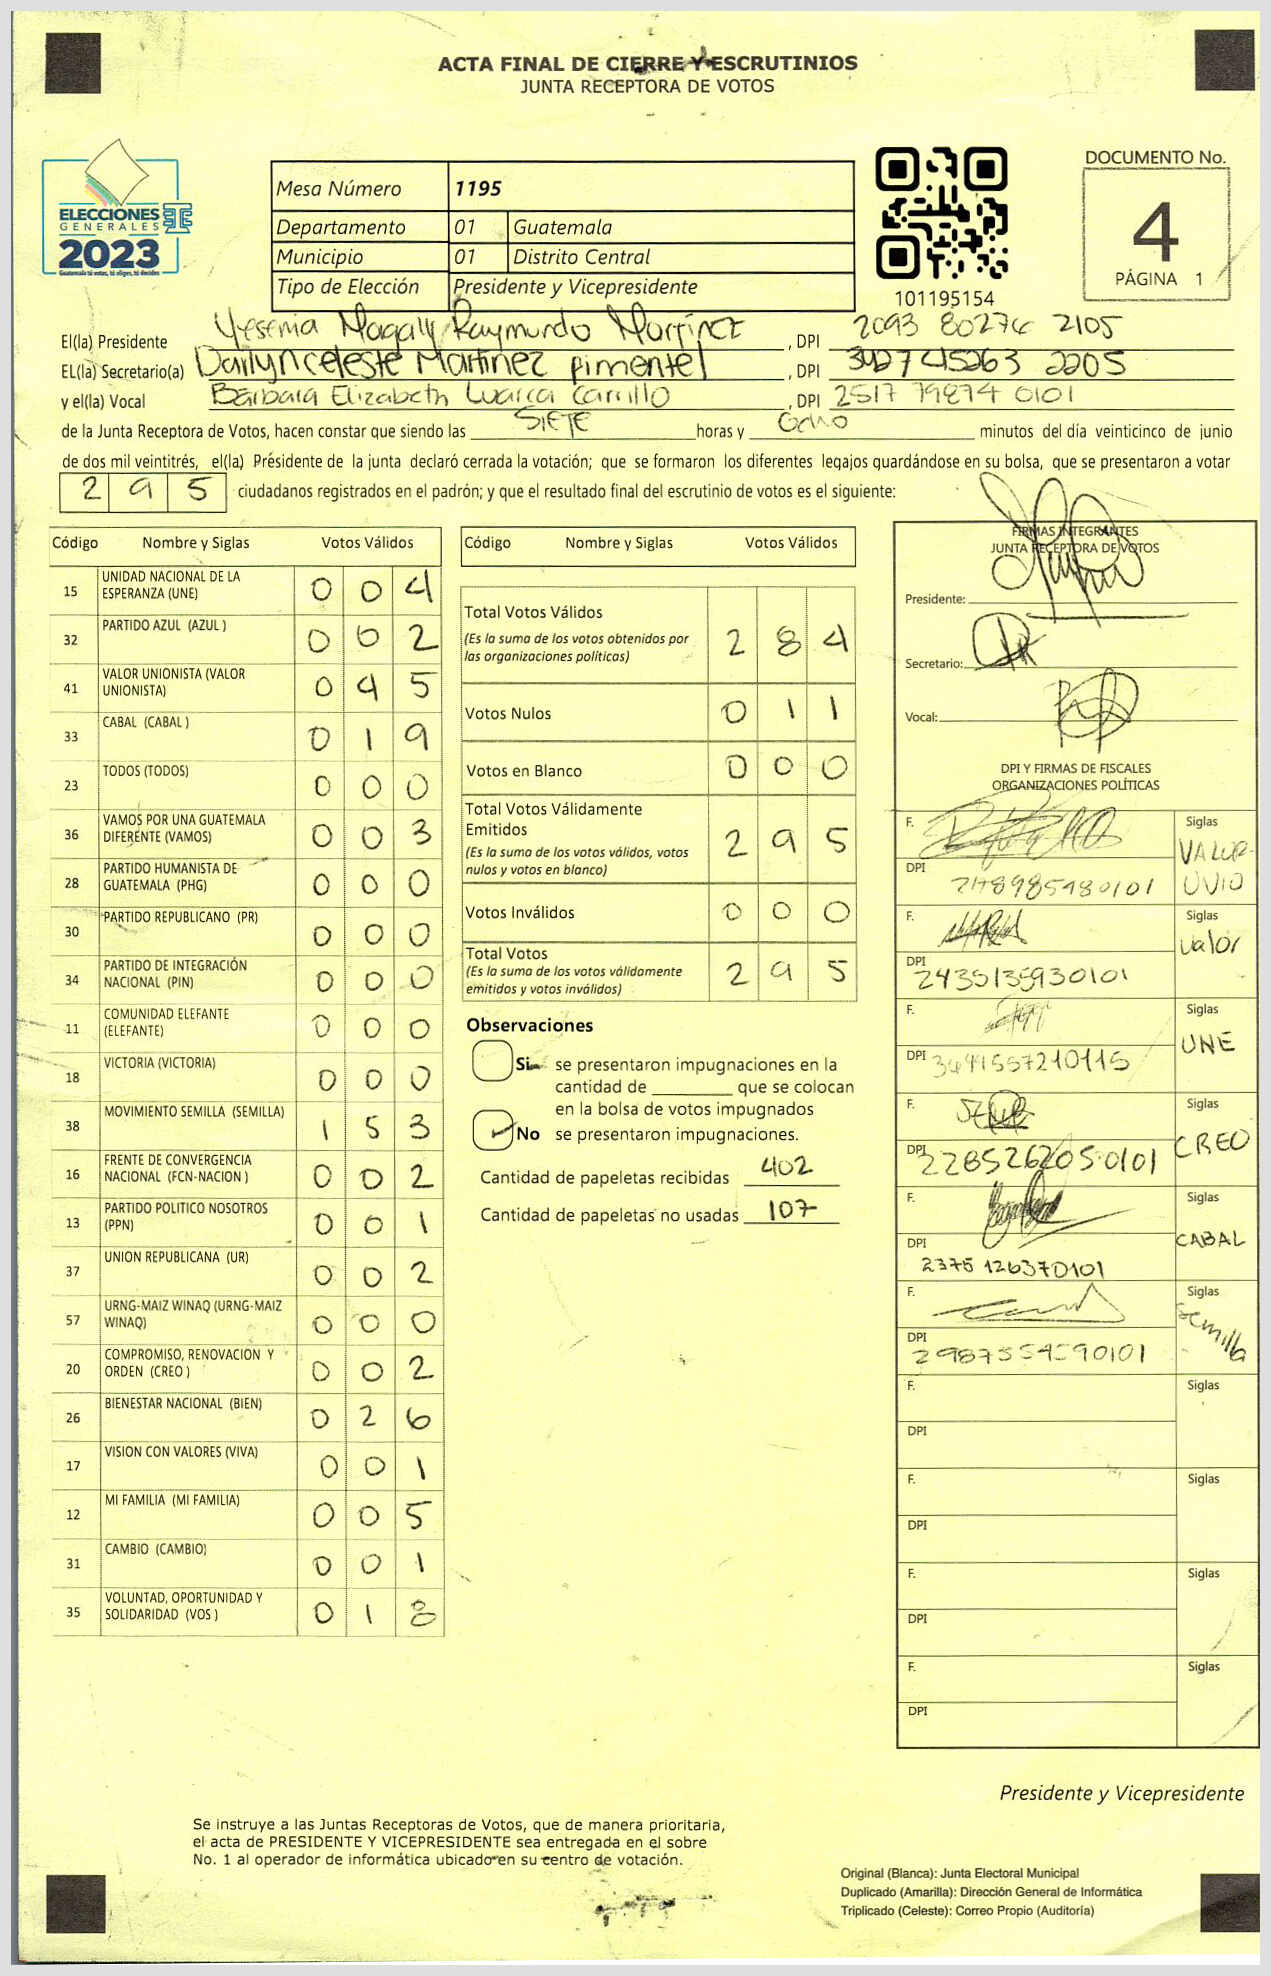 ACTA FINAL DE CIERRE Y ESCRUTINIOS
JUNTA RECEPTORA DE VOTOS
ELECCIONES
GENERALES
2023
Guatemala tú votas, tú eliges, tú decides
Mesa Número 1195
Departamento 01 Guatemala
Municipio 01 Distrito Central
Tipo de Elección Presidente y Vicepresidente
101195154
DOCUMENTO No.
4
PÁGINA 1
El(la) Presidente Yesenia Magaly Raymundo Martínez, DPI 2093 80276 2105
EL(la) Secretario(a) Dailyn celeste Martinez pimentel, DPI 3427 45263 2205
y el(la) Vocal Bárbara Elizabeth Carrillo, DPI 2517 79874 0101
de la Junta Receptora de Votos, hacen constar que siendo las SIETE horas y Ocho minutos del día veinticinco de junio
de dos mil veintitrés, el(la) Présidente de la junta declaró cerrada la votación; que se formaron los diferentes legajos guardándose en su bolsa, que se presentaron a votar
295 ciudadanos registrados en el padrón; y que el resultado final del escrutinio de votos es el siguiente:
Código Nombre y Siglas Votos Válidos
15 UNIDAD NACIONAL DE LA ESPERANZA (UNE) 0 0 4
32 PARTIDO AZUL (AZUL ) 0 0 2
41 VALOR UNIONISTA (VALOR UNIONISTA) 0 4 5
33 CABAL (CABAL ) 0 1 9
23 TODOS (TODOS) 0 0 0
36 VAMOS POR UNA GUATEMALA DIFERENTE (VAMOS) 0 0 3
28 PARTIDO HUMANISTA DE GUATEMALA (PHG) 0 0 0
30 PARTIDO REPUBLICANO (PR) 0 0 0
34 PARTIDO DE INTEGRACIÓN NACIONAL (PIN) 0 0 0
11 COMUNIDAD ELEFANTE (ELEFANTE) 0 0 0
18 VICTORIA (VICTORIA) 0 0 0
38 MOVIMIENTO SEMILLA (SEMILLA) 1 5 3
16 FRENTE DE CONVERGENCIA NACIONAL (FCN-NACION ) 0 0 2
13 PARTIDO POLITICO NOSOTROS (PPN) 0 0 1
37 UNION REPUBLICANA (UR) 0 0 2
57 URNG-MAIZ WINAQ (URNG-MAIZ WINAQ) 0 0 0
20 COMPROMISO, RENOVACION Y ORDEN (CREO ) 0 0 2
26 BIENESTAR NACIONAL (BIEN) 0 2 6
17 VISION CON VALORES (VIVA) 0 0 1
12 MI FAMILIA (MI FAMILIA) 0 0 5
31 CAMBIO (CAMBIO) 0 0 1
35 VOLUNTAD, OPORTUNIDAD Y SOLIDARIDAD (VOS ) 0 1 8
Código Nombre y Siglas Votos Válidos
Total Votos Válidos 2 8 4
(Es la suma de los votos obtenidos por
las organizaciones políticas)
Votos Nulos 0 1 1
Votos en Blanco 0 0 0
Total Votos Válidamente
Emitidos 2 9 5
(Es la suma de los votos válidos, votos
nulos y votos en blanco)
Votos Inválidos 0 0 0
Total Votos 2 9 5
(Es la suma de los votos válidamente
emitidos y votos inválidos)
Observaciones
Si se presentaron impugnaciones en la
cantidad de ________ que se colocan
en la bolsa de votos impugnados
No se presentaron impugnaciones.
Cantidad de papeletas recibidas 402
Cantidad de papeletas no usadas 107
FIRMAS INTEGRANTES
JUNTA RECEPTORA DE VOTOS
Presidente:
Secretario:
Vocal:
DPI Y FIRMAS DE FISCALES
ORGANIZACIONES POLÍTICAS
F. Siglas VALOR-UNIO
DPI
F. Siglas valor
DPI 2435135930101
F. Siglas UNE
DPI 3491557210115
F. Siglas CREO
DPI 2285262050101
F. Siglas CABAL
DPI 2375 126370101
F. Siglas semilla
DPI 2987354590101
F. Siglas
DPI
F. Siglas
DPI
F. Siglas
DPI
F. Siglas
DPI
Presidente y Vicepresidente
Se instruye a las Juntas Receptoras de Votos, que de manera prioritaria,
el acta de PRESIDENTE Y VICEPRESIDENTE sea entregada en el sobre
No. 1 al operador de informática ubicado en su centro de votación.
Original (Blanca): Junta Electoral Municipal
Duplicado (Amarilla): Dirección General de Informática
Triplicado (Celeste): Correo Propio (Auditoría)